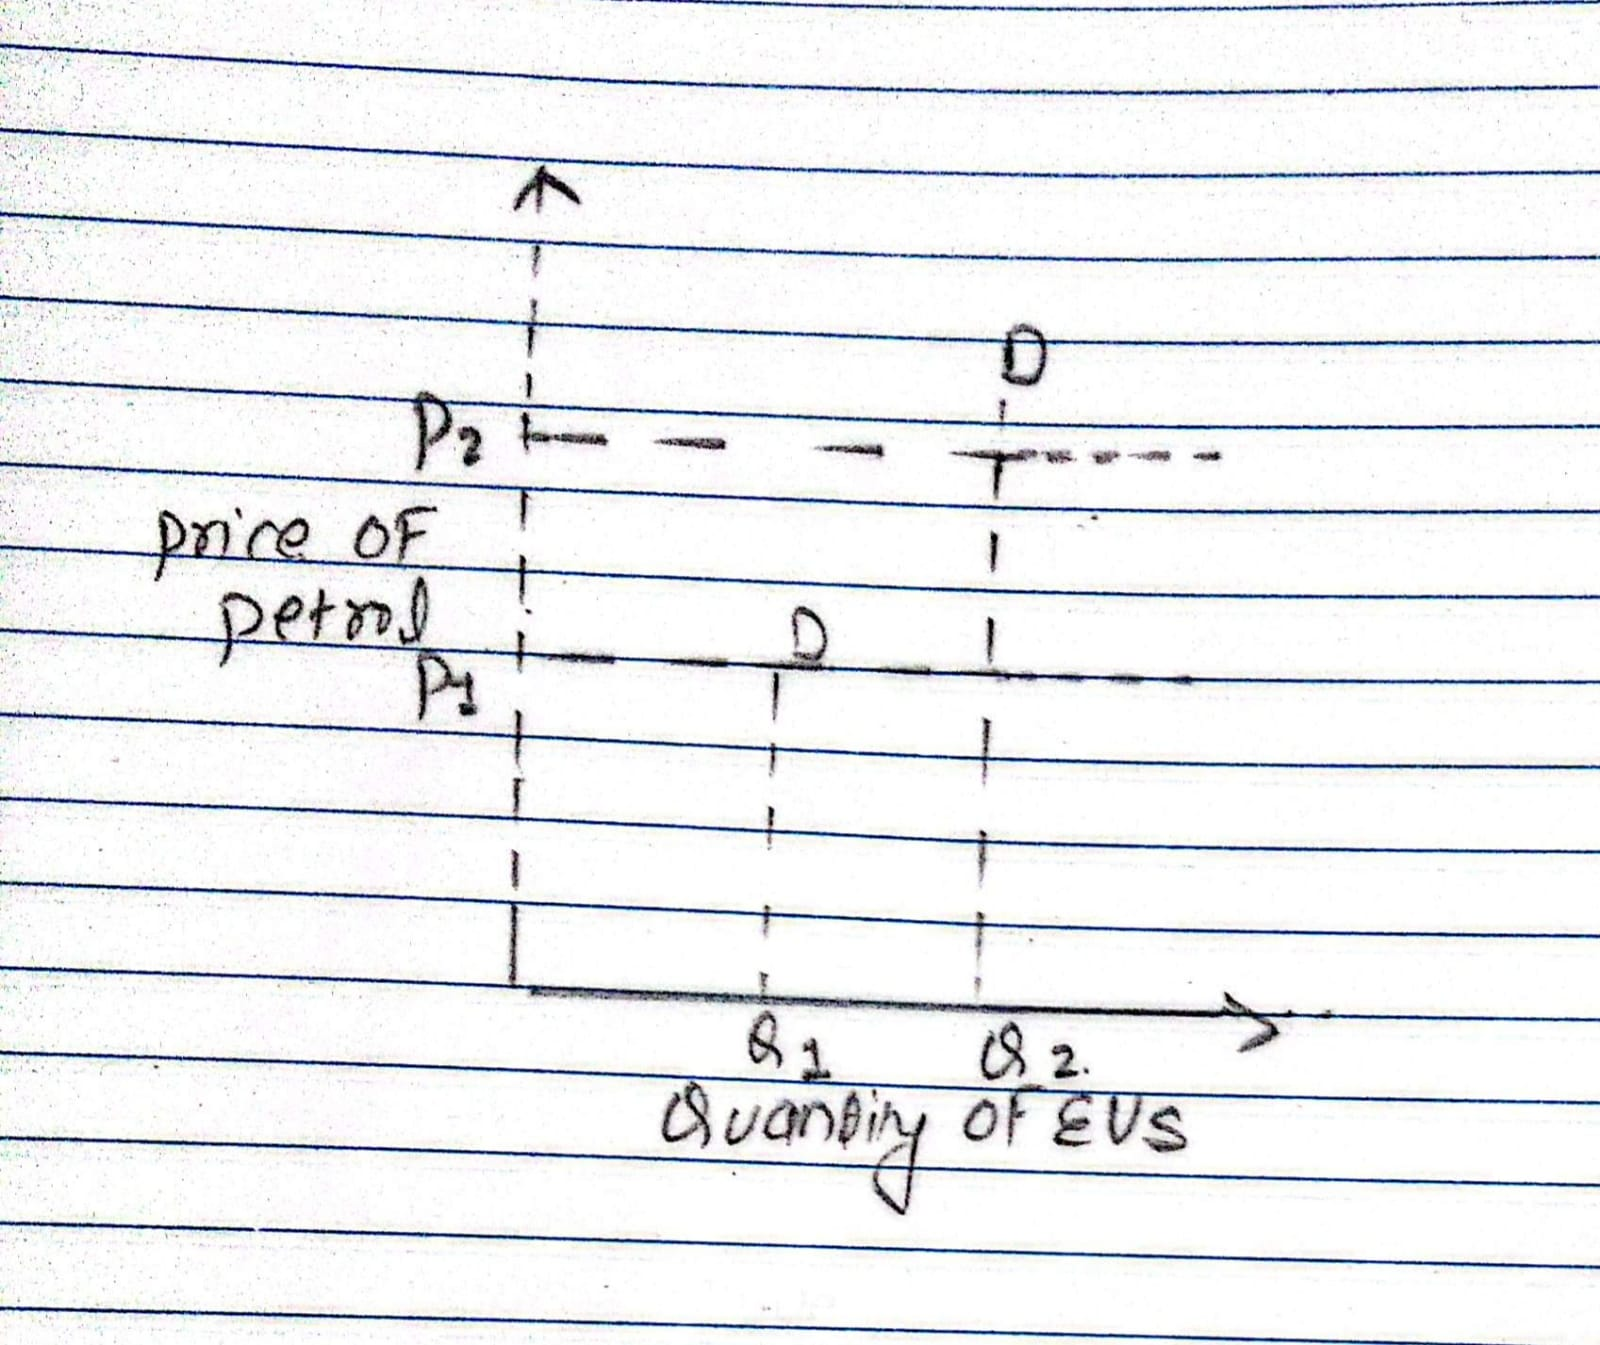 D
P2
price OF
petrol
D
P1
Q1 Q2.
Quantity OF EVS